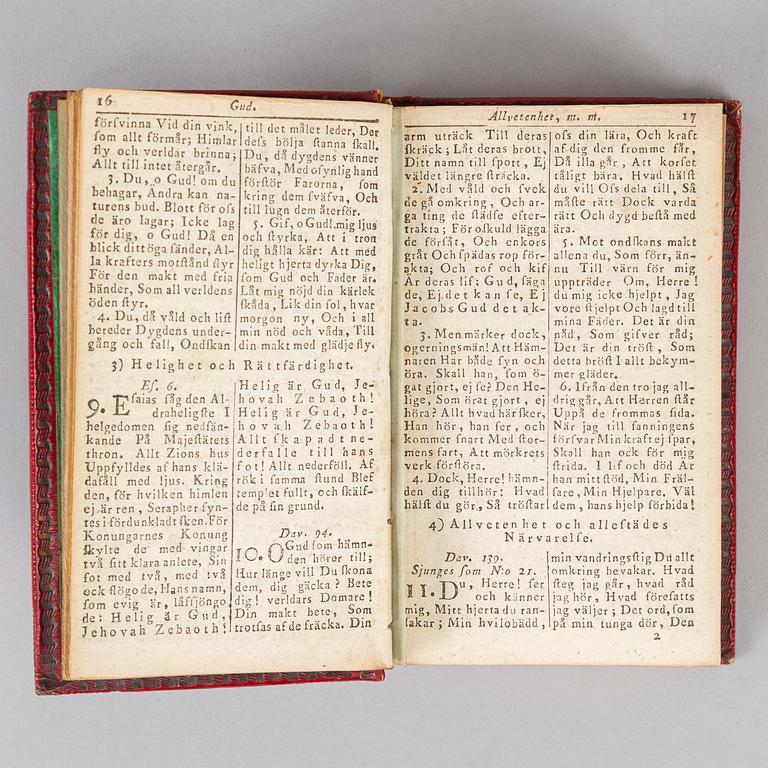 16
Gud.
förſvinna Vid din vink,
ſom allt förmår; Himlar
fly och verldar brinna;
Allt till intet återgår.
3. Du, o Gud! om du
behagar, Andra kan na-
turens bud. Blott för oſs
de äro lagar; Icke lag
för dig, o Gud! Då en
blick dittöga ſänder, Al-
la krafters motſtånd ſtyr
För den makt med fria
händer, Som all verldens
öden ſtyr.
4. Du, då våld och liſt
bereder Dygdens under-
gång och fall, Ondſkan
till det målet leder, Der
deſs bölja ſtanna ſkall.
Du, då dygdens vänner
bäfva, Med oſynlig hand
förſtör Farorna, ſom
kring dem ſväfva, Och
till lugn dem återför.
5. Gif, o Gud! mig ljus
och ſtyrka, Att i tron
dig hålla kär: Att med
heligt hjerta dyrka Dig,
ſom Gud och Fader är.
Låt mig nöjd din kärlek
ſkåda, Lik din ſol, hvar
morgon ny, Och i all
min nöd och våda, Till
din makt med glädje fly.
3) Helighet och Rättſärdighet.
Eſ. 6.
9. Eſaias ſåg den Al-
draheligſte I
helgedomen ſig nedſän-
kande På Majeſtätets
thron. Allt Zions hus
Uppfylldes af hans klä-
dafåll med ljus. Kring
den, för hvilken himlen
ej är ren, Serapher ſyn-
tes i fördunkladt ſken. För
Konungarnes Konung
ſkylte de med vingar
två ſitt klara anlete, Sin
fot med två, med två
ock flögo de, Hans namn,
ſom evig är, låfſjöngo
de: Helig är Gud,
Jehovah Zebaoth!
Helig är Gud, Je-
hovah Zebaoth!
Helig är Gud, Je-
hovah Zebaoth!
Allt ſkapadt ne-
derfalle till hans
fot! Allt nederföll. Af
rök i ſamma ſtund Blef
templet fullt, och ſkälf-
de på ſin grund.
Dav. 94.
10. O Gud ſom hämn-
den hörer till;
Hur länge vill Du ſkona
dem, dig gäcka? Bete
dig! verldars Domare!
Din makt bete, Som
trotſas af de fräcka. Din
Allvetenhet, m. m.
17
arm uträck Till deras
ſkräck; Låt deras brott,
Ditt namn till ſpott, Ej
väldet längre ſträcka.
2. Med våld och ſvek
de gå omkring, Och ar-
ga ting de ſtädſe efter-
trakta; För oſkuld lägga
de förſåt, Och enkors
gråt Och ſpädas rop för-
akta; Och rof och kif
Är deras lif: Gud, ſäga
de, Ej det kan ſe, Ej
Jacobs Gud det ak-
ta.
3. Men märker dock,
ogerningsmän! Att Häm-
naren Har både ſyn och
öra. Skall han, ſom ö-
gat gjort, ej ſe? Den He-
lige, Som örat gjort, ej
höra? Allt hvad här ſker,
Han hör, han ſer, och
kommer ſnart Med ſtor-
mens fart, Att mörkrets
verk förſtöra.
4. Dock, Herre! hämn-
den dig tillhör: Hvad
hälſt du gör, Så tröſtar
oſs din lära, Och kraft
af dig den fromme får,
Då illa går, Att korſet
tåligt bära. Hvad hälſt
du vill Oſs dela till, Så
måſte rätt Dock varda
rätt Och Dygd beſtå med
ära.
5. Mot ondſkans makt
allena du, Som förr, än-
nu Till värn för mig
uppträder Om, Herre!
du mig icke hjelpt, Jag
vore ſtjelpt Och lagd till
mina Fäder. Det är din
nåd, Som gifver råd;
Det är din tröſt, Som
detta bröſt I allt bekym-
mer gläder.
6. Ifrån den tro jag all-
drig går, Att Herren ſtår
Uppå de frommas ſida.
När jag till ſanningens
förſvar Min kraft ej ſpar,
Skall han ock för mig
ſtrida. I lif och död Är
han mitt ſtöd, Min Fräl-
ſare, Min Hjelpare. Väl
dem, hans hjelp förbida!
4) Allvetenhet och alleſtädes
Närvarelſe.
Dav. 139.
Sjunges ſom N:o 21.
11. Du, Herre! ſer
och känner
mig, Mitt hjerta du ran-
ſakar; Min hvilobädd,
min vandringsſtig Du allt
omkring bevakar. Hvad
ſteg jag går, hvad råd
jag hör, Hvad föreſatts
jag väljer; Det ord, ſom
på min tunga dör, Den
2